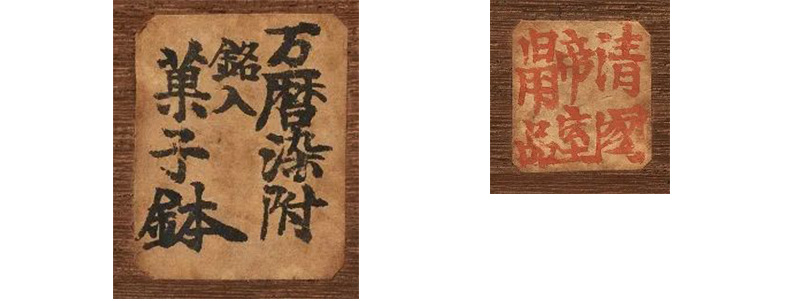 万暦染附
銘入
菓子鉢
清國
帝室
旧用品